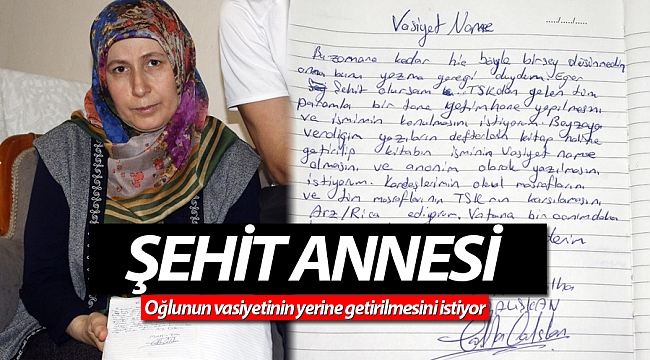 Vasiyet Name
..../..../....
Bu zamana kadar hiç böyle birşey düşünmedim
ama bunu yazma gereği duydum. Eğer
Şehit olursam TSK dan gelen tüm
paramla bir tane yetimhane yapılmasını
ve ismimin konulmasını istiyorum. Beyzaya
verdiğim yazıların defterlerin kitap haline
getirilip kitabın isminin Vasiyet name
olmasını ve anonim olarak yazılmasını
istiyorum. Kardeşlerimin okul masraflarını
ve tüm masraflarını TSK nın karşılamasını
Arz/Rica ediyorum. Vatana bir canım daha
ŞEHİT ANNESİ
Oğlunun vasiyetinin yerine getirilmesini istiyor